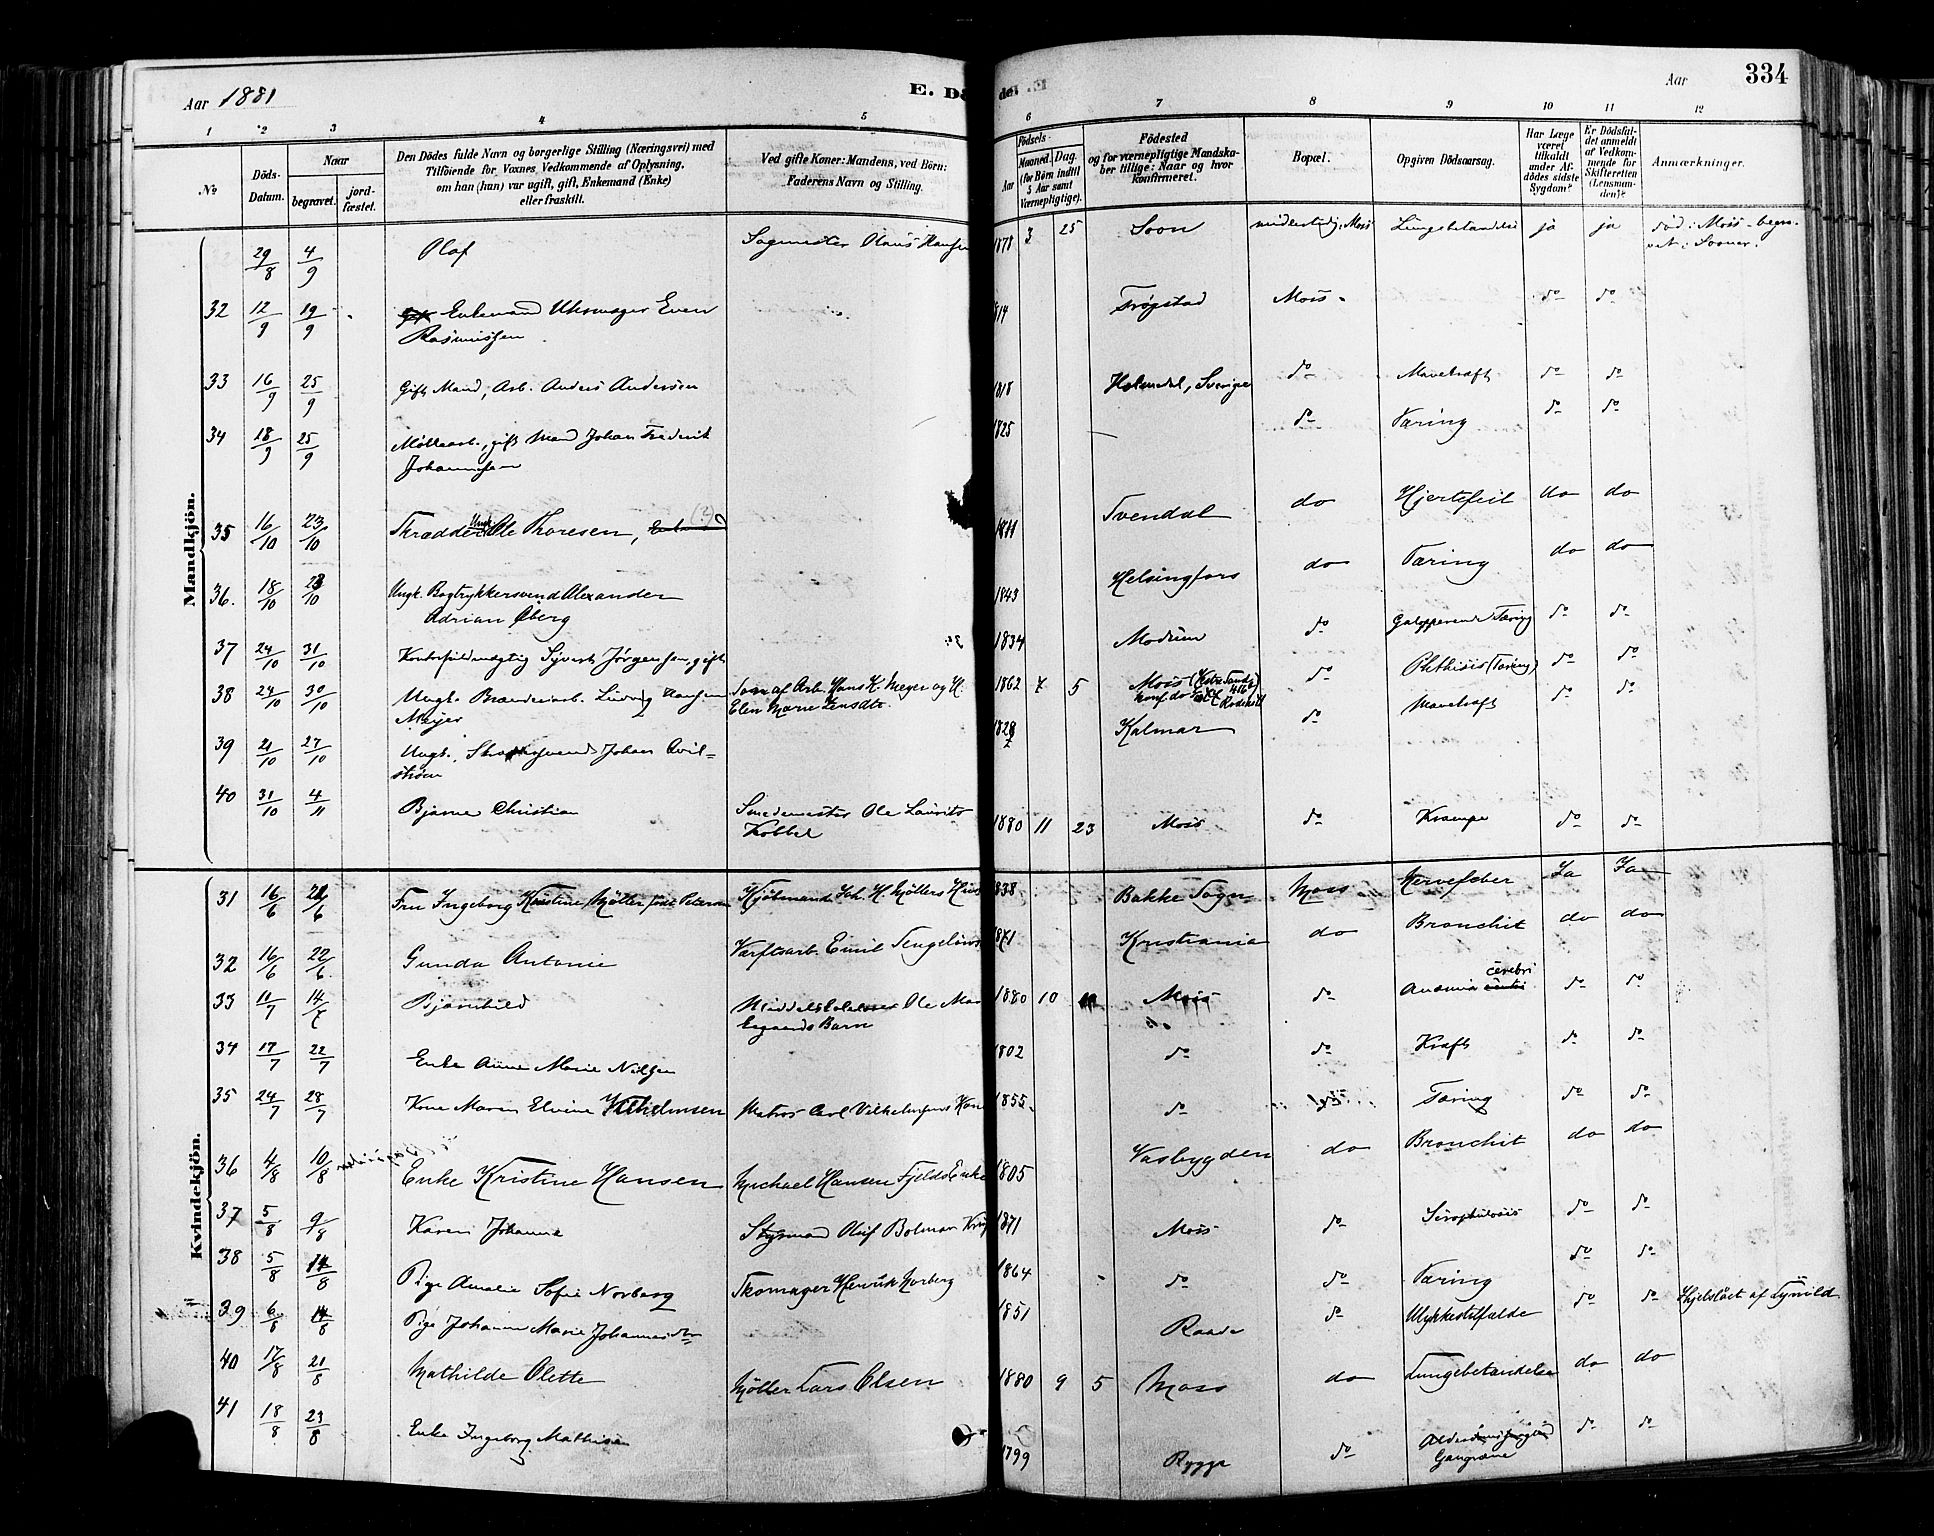 Aar 1881
E. Dö
de.
Aar
334
1 2 3 4 5 6 7 8 9 10 11 12
No
Döds-
Datum.
Naar
begravet.
jord-
fæstet.
Den Dödes fulde Navn og borgerlige Stilling (Næringsvei) med
Tilföiende for Voxnes Vedkommende af Oplysning,
om han (hun) var ugift, gift, Enkemand (Enke)
eller fraskilt.
Ved gifte Koner: Mandens, ved Börn:
Faderens Navn og Stilling.
Födsels-
Aar
Maaned.
Dag.
(for Börn indtil
5 Aar samt
Værnepligtige).
Födested
og for værnepligtige Mandska-
ber tillige: Naar og hvor
konfirmeret.
Bopæl.
Opgiven Dödsaarsag.
Har Læge
været
tilkaldt
under Af-
dödes sidste
Sygdom?
Er Dödsfal-
det anmeldt
af Vedkom-
mende for
Skifteretten
(Lensman-
den)?
Anmærkninger.
Mandkjön.
29/8 4/9 Olaf Sagmester Olaus Hansen 1878 3 25 Soon midlertidig Moss Lungebetændelse ja ja død i Moss - begra-
vet i Sooner.
32 12/9 19/9 Enkemand Uhrmager Even
Rasmussen 1814 Trøgstad Moss do do
33 16/9 25/9 Gift Mand, Arb. Anders Andersen 1818 Holmedal, Sverige do Mavekræft do do
34 18/9 25/9 Møllearb., gift Mand Johan Frederik
Johannesen 1825 — do Tæring do do
35 16/10 23/10 Skrædder Ungk. Ole Thoresen, (?) 1811 Svendal do Hjertefeil do do
36. 18/10 23/10 Ungk. Bogtrykkersvend Alexander
Adrian Øberg 1843 Helsingfors do Tæring do do
37 24/10 31/10 Syvert Jørgensen, gift 1834 Modum do Galopperende Tæring do do
38 24/10 30/10 Ungk. Brænderiarb. Ludvig Hansen
Meyer Søn af Arb. Hans K. Meyer og H.
Elen Marie 1862 7 5 Moss do Phthisis (Tæring) do do
39 21/10 27/10 Ungk. Johan Qvil-
strøm 1828 Kalmar do Mavekræft do do
40 31/10 4/11 Bjarne Christian Smedemester Ole Laurits
Købbel 1880 11 23 Moss do Krampe do do
Kvindekjön.
31 16/6 21/6 Fru Ingeborg Kristine Møller født Petersen Kjøbmand Joh. H. Møllers Hus 1838 Bakke Sogn Moss Nervefeber Ja Ja
32 16/6 22/6 Gunda Antonie Værftsarb. Emil Tengelins 1871 Kristiania do Bronchit do do
33 11/7 14/7 Bjarnhild Middelskolelærer Ole Mos
Eegaards Barn 1880 10 Moss do Anæmia cerebri do do
34 17/7 22/7 Enke Anne Marie Nilsen 1802 do do Kræft do do
35 24/7 28/7 Kone Maren Elvine Vilhelmsen Matros Carl Vilhelmsens Kone 1855 do do Tæring do do
36 4/8 10/8 Enke Kristine Hansen Michael Hansen Fjelds Enke 1805 Vasbygden do Bronchit do do
37 5/8 9/8 Karen Johanne Styrmand Oluf Bolman 1871 Moss do Scrophulosis do do
38 5/8 14/8 Pige Amalie Sofie Norberg Skomager Henrik Norberg 1864 do do Tæring do do
39 6/8 14/8 Pige Johanne Marie Johannesen 1851 Raade do Ulykkestilfælde do do Ihjelslået af Lynild
40 17/8 21/8 Mathilde Olette Møller Lars Olsen 1880 9 5 Moss do Lungebetændelse do do
41 18/8 23/8 Enke Ingeborg Mathisen 1799 Rygge do Gangræne do do